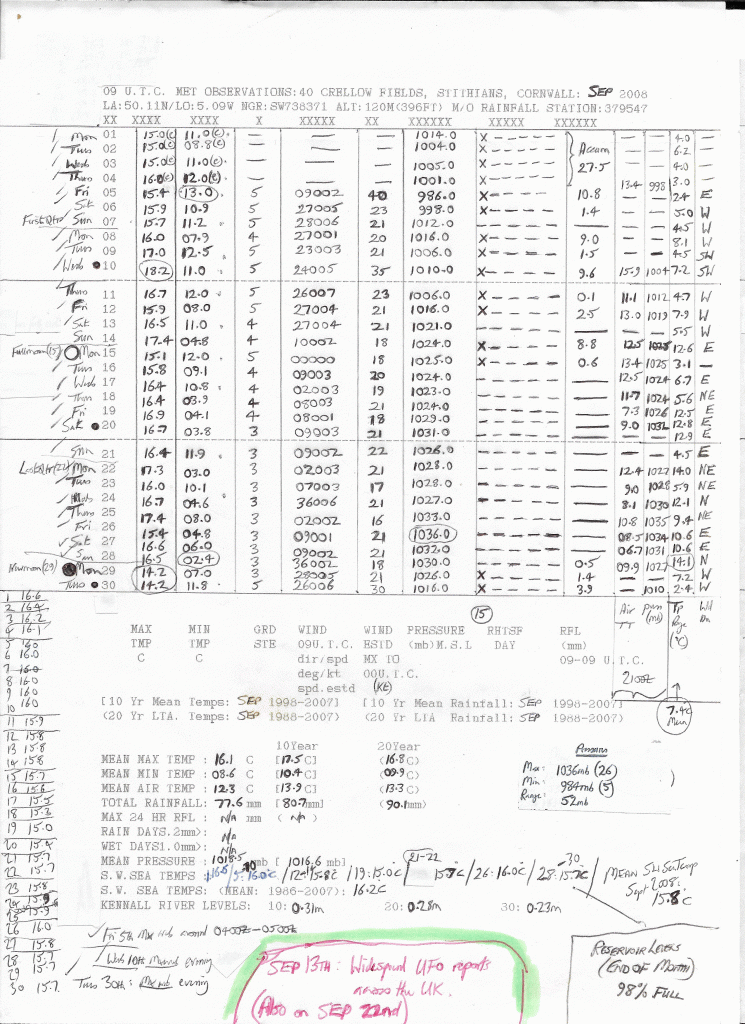 09 U.T.C. MET OBSERVATIONS:40 CRELLOW FIELDS, STITHIANS, CORNWALL: SEP 2008
LA:50.11N/LO:5.09W NGR:SW738371 ALT:120M(396FT) M/O RAINFALL STATION:379547
XX XXXX XXXX X XXXXX XX XXXXXX XXXXX XXXXXX
Mon 01 15.0(c) 11.0(c) — — — 1014.0 X – – – – – — — 4.0 —
Tues 02 15.0(c) 08.8(c) — — — 1004.0 X – – – – Accum — — 6.2 —
Weds 03 15.0(c) 11.0(c) — — — 1005.0 X – – – – 27.5 — — 4.0 —
Thurs 04 16.0(c) 12.0(c) — — — 1001.0 X – – – – 13.4 998 3.0 —
Fri 05 15.4 13.0 5 09002 40 986.0 X – – – – 10.8 — — 2.4 E
Sat 06 15.9 10.9 5 27005 23 998.0 X – – – – 1.4 — — 5.0 W
First Qtr Sun 07 15.7 11.2 5 28006 21 1012.0 X – – – – — — — 4.5 W
Mon 08 16.0 07.9 4 27001 20 1016.0 X – – – – 9.0 — — 8.1 W
Tues 09 17.0 12.5 5 23003 21 1006.0 X – – – – 1.5 — — 4.5 SW
Weds 10 18.2 11.0 5 24005 35 1010.0 X – – – – 9.6 15.9 1004 7.2 SW
Thurs 11 16.7 12.0 5 26007 23 1006.0 X – – – – 0.1 11.1 1012 4.7 W
Fri 12 15.9 08.0 5 27004 21 1016.0 X – – – – 2.5 13.0 1019 7.9 W
Sat 13 16.5 11.0 4 27004 21 1021.0 — — — — 5.5 W
Sun 14 17.4 04.8 4 10002 18 1024.0 X – – – – 8.8 12.5 1025 12.6 E
Full moon (15) Mon 15 15.1 12.0 5 00000 18 1025.0 X – – – – 0.6 13.4 1025 3.1 —
Tues 16 15.8 09.1 4 09003 20 1024.0 – – – – — 12.5 1024 6.7 E
Weds 17 16.4 10.8 4 02003 19 1023.0 – – – – — 11.7 1024 5.6 NE
Thurs 18 16.4 03.9 4 08003 21 1024.0 – – – – — 7.3 1026 12.5 E
Fri 19 16.9 04.1 4 08001 18 1029.0 – – – – — 9.0 1032 12.8 E
Sat 20 16.7 03.8 3 09003 21 1031.0 – – – – — — — 12.9 E
Sun 21 16.4 11.9 3 09002 22 1026.0 – – – – — — — 4.5 E
Last Qtr (22) Mon 22 17.3 03.0 3 02003 21 1028.0 – – – – — 12.4 1027 14.0 NE
Tues 23 16.0 10.1 3 07003 17 1028.0 – – – – — 9.0 1028 5.9 NE
Weds 24 16.7 04.6 3 36006 21 1027.0 – – – – — 8.1 1030 12.1 N
Thurs 25 17.4 08.0 3 02002 16 1033.0 – – – – — 10.8 1035 9.4 NE
Fri 26 15.4 04.8 3 09001 21 1036.0 – – – – — 08.5 1034 10.6 E
Sat 27 16.6 06.0 3 09002 21 1032.0 – – – – — 06.7 1031 10.6 E
Sun 28 16.5 02.4 3 36002 18 1030.0 – – – – 0.5 09.9 1027 14.1 N
New moon (29) Mon 29 14.2 07.0 3 28005 21 1026.0 X – – – – 1.4 — — 7.2 W
Tues 30 14.2 11.8 5 26006 30 1016.0 X – – – – 3.9 — 1010 2.4 W
(15)
MAX MIN GRD WIND WIND PRESSURE RHTSF RFL
TMP TMP STE 09U.T.C. ESTD (mb)M.S.L DAY (mm)
C C dir/spd MX TO 09-09 U.T.C.
deg/kt 00U.T.C.
spd.estd (KE)
Air TT
pres (mb)
Tp Rnge (°C)
Wd Dn
2100z
7.4c Mean
[10 Yr Mean Temps: SEP 1998-2007] [10 Yr Mean Rainfall: SEP 1998-2007]
(20 Yr LTA. Temps: SEP 1988-2007) (20 Yr LTA Rainfall: SEP 1988-2007)
10Year 20Year
MEAN MAX TEMP : 16.1 C [17.5C] (16.8C)
MEAN MIN TEMP : 08.6 C [10.4C] (09.9C)
MEAN AIR TEMP : 12.3 C [13.9C] (13.3C)
TOTAL RAINFALL: 77.6 mm [80.7mm] (90.1mm)
MAX 24 HR RFL : N/A mm (N/A)
RAIN DAYS.2mm>: N/A
WET DAYS1.0mm>: N/A
MEAN PRESSURE : 1018.5 mb [ 1016.6 mb]
S.W. SEA TEMPS : 16.5/9:16.0°C /12-14:15.8°C /19:15.0°C /21-22 15.7°C /26:16.0°C /28-30:15.7°C
S.W. SEA TEMPS: (MEAN: 1986-2007): 16.2C
KENNALL RIVER LEVELS: 10: 0.31m 20: 0.28m 30: 0.23m
Max: 1036mb (26)
Min: 984mb (5)
Range: 52mb
MEAN SW Sea Temp
Sept 2008:
15.8°C
1 16.6
2 16.4
3 16.2
4 16.1
5 16.0
6 16.0
7 16.0
8 16.0
9 16.0
10 16.0
11 15.9
12 15.8
13 15.8
14 15.8
15 15.7
16 15.6
17 15.5
18 15.3
19 15.0
20 15.4
21 15.7
22 15.7
23 15.8
24 15.9
25 15.9
26 16.0
27 15.8
28 15.7
29 15.7
30 15.7
Fri 5th Max wnd around 0400z–0500z
Weds 10th Max wnd evening
Tues 30th: Max wnd evening
SEP 13TH: Widespread UFO reports
across the UK.
(Also on SEP 22nd)
RESERVOIR LEVELS
(END OF MONTH)
98% FULL